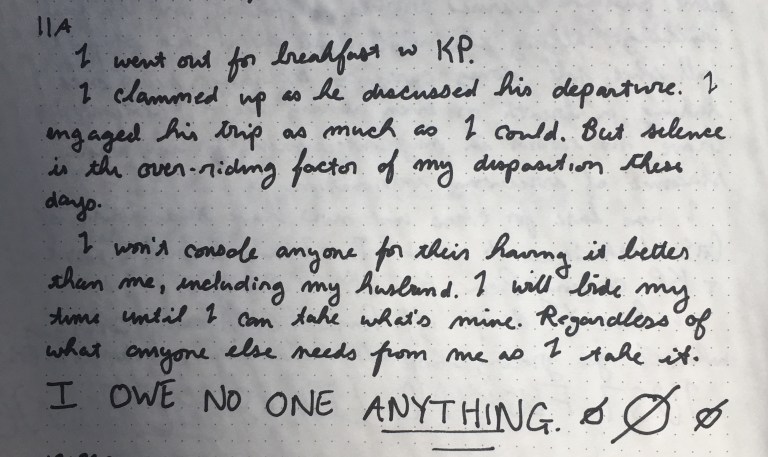 11A
I went out for breakfast w KP.
I clammed up as he discussed his departure. I
engaged his trip as much as I could. But silence
is the over-riding factor of my disposition these
days.
I won't console anyone for their having it better
than me, including my husband. I will bide my
time until I can take what's mine. Regardless of
what anyone else needs from me as I take it.
I OWE NO ONE ANYTHING. ø Ø ø